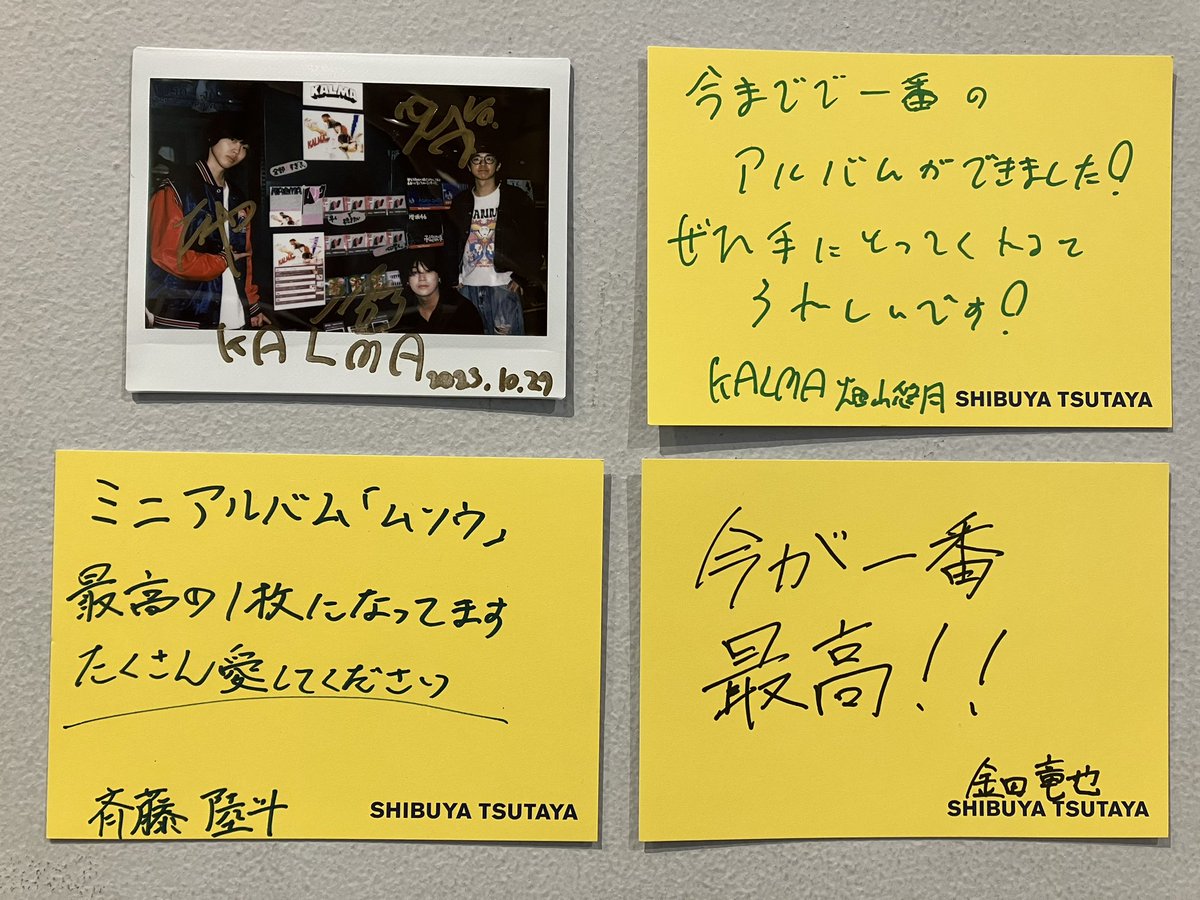 KALMA
KALMA
KALMA
2023.10.29
今までで一番の
アルバムができました!
ぜひ手にとってくれて
うれしいです!
KALMA 畑山悠月 SHIBUYA TSUTAYA
ミニアルバム「ムソウ」
最高の1枚になってます
たくさん愛してください
斉藤陸斗 SHIBUYA TSUTAYA
今が一番
最高!!
金田竜也
SHIBUYA TSUTAYA